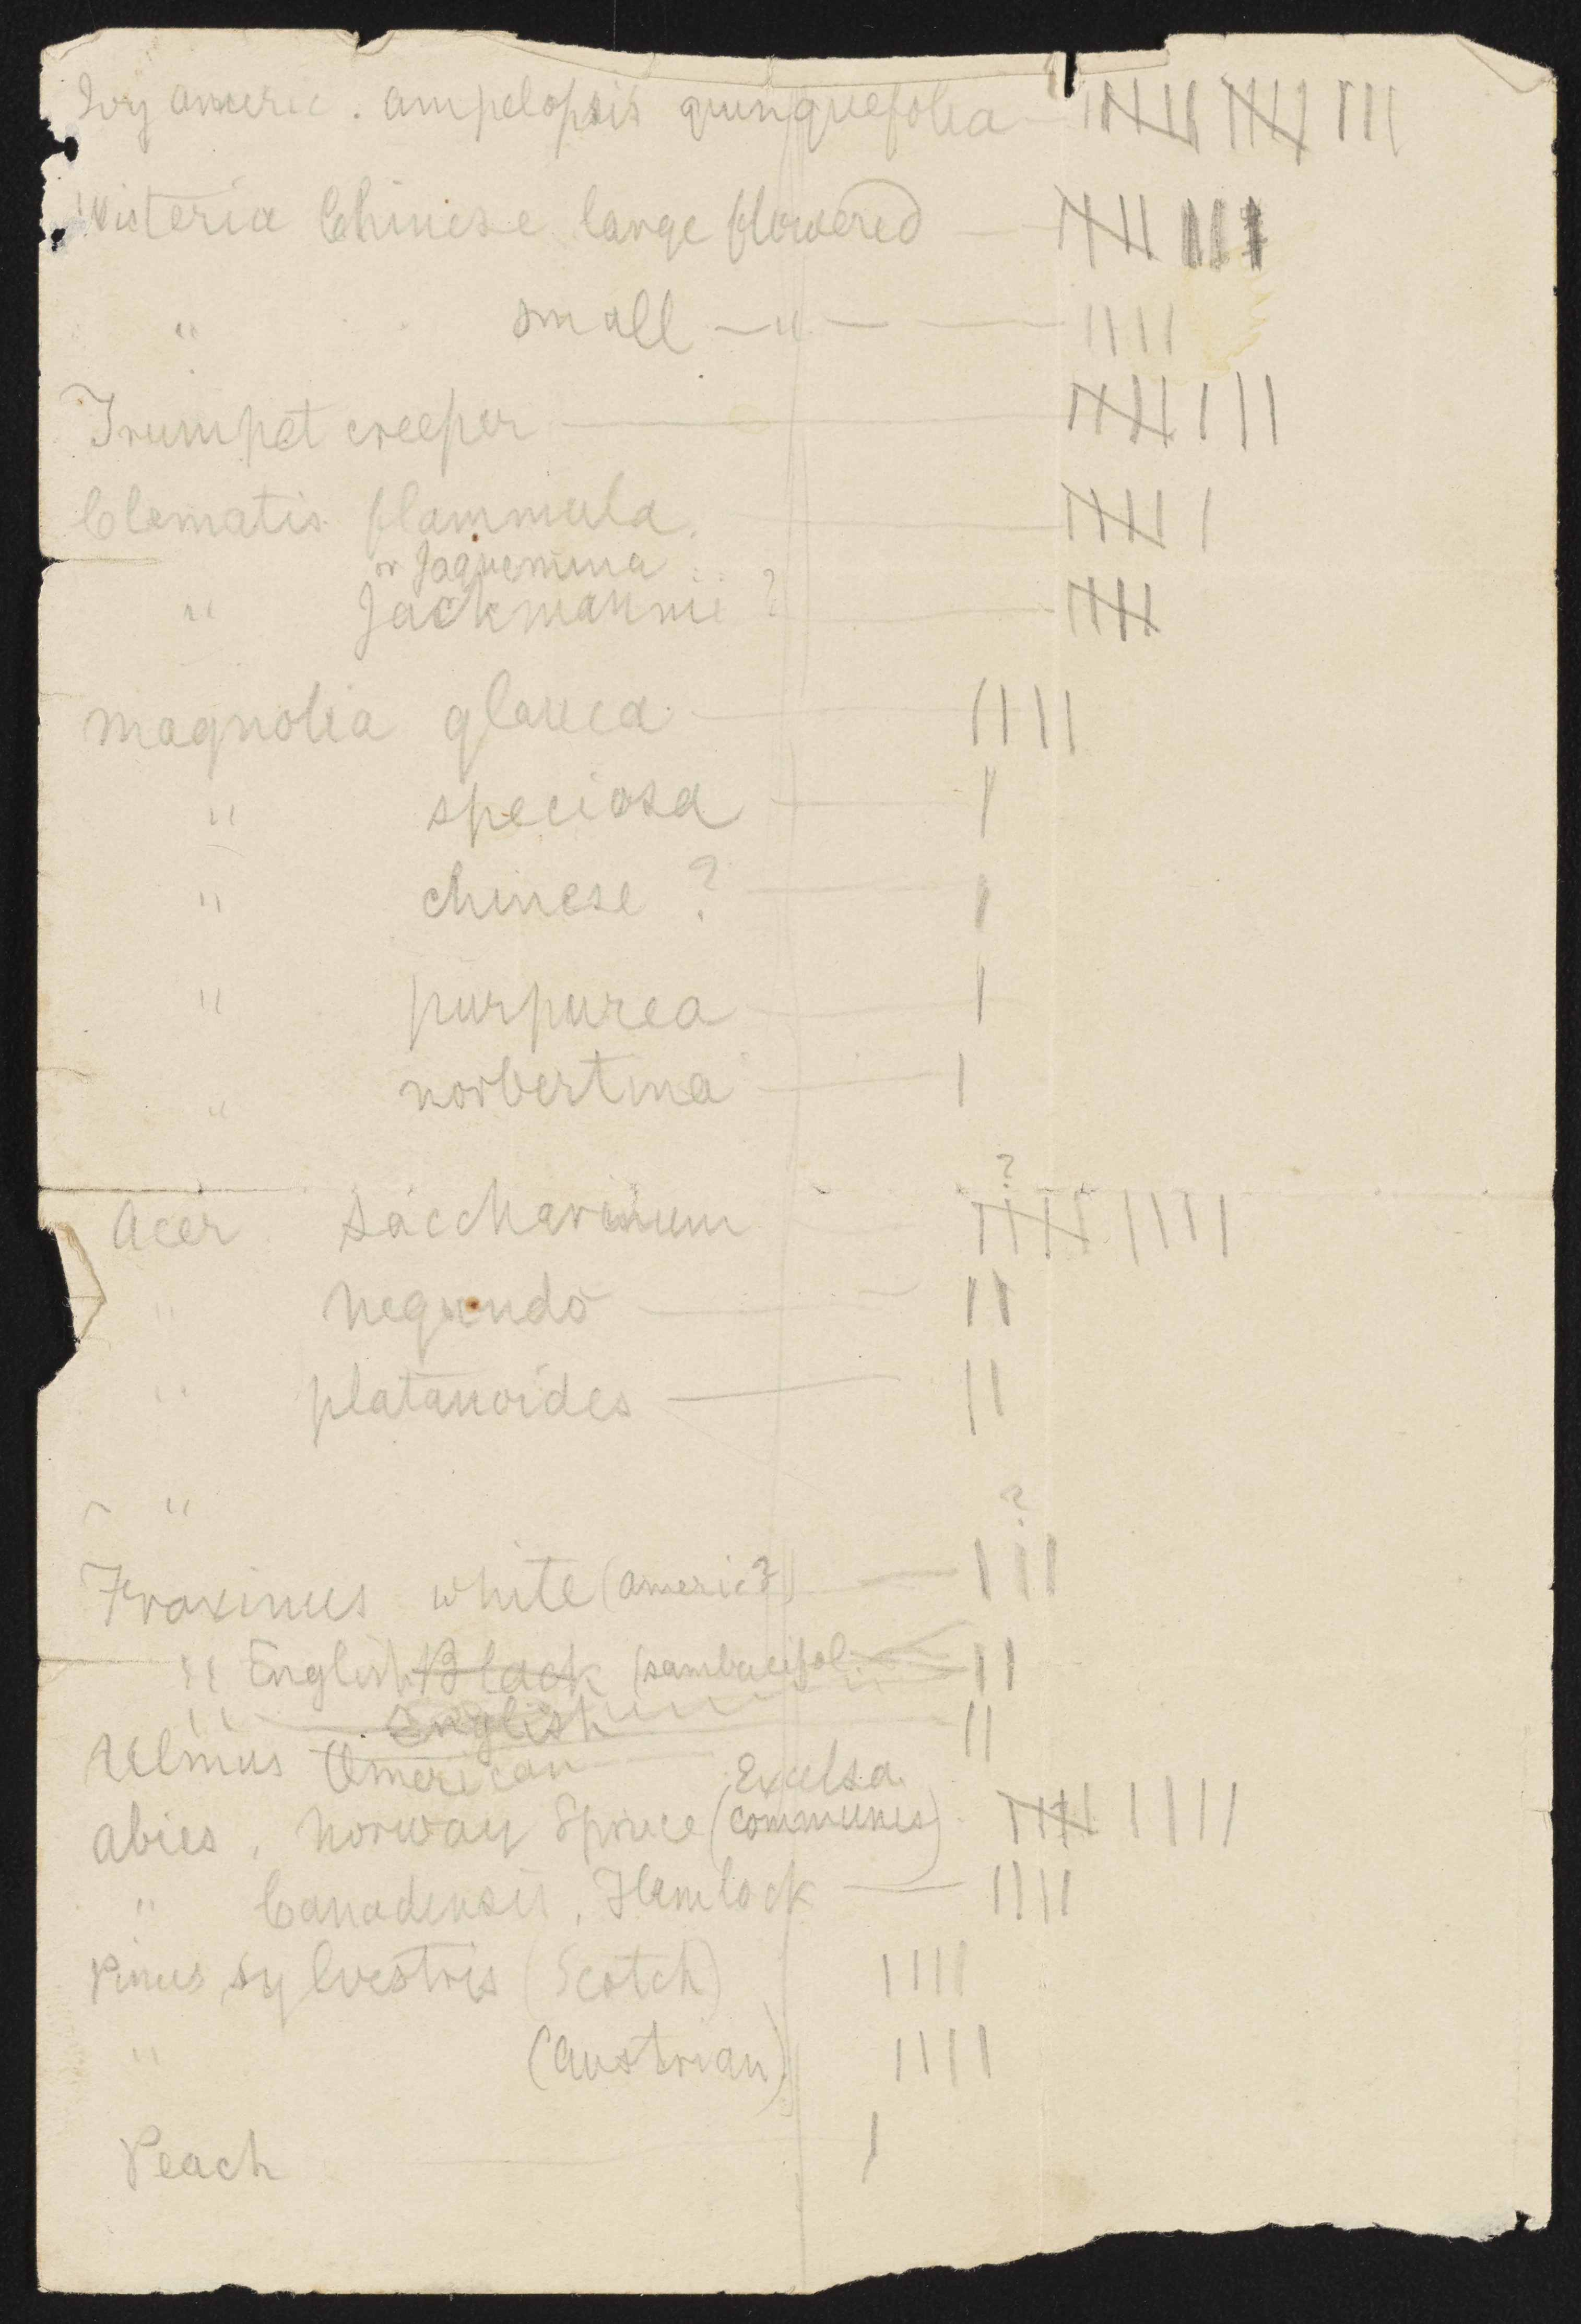 Ivy americ. ampelopsis quinquefolia — |||| |||| |||
Wisteria Chinese large flowered — |||| |||
" small — " — — ||||
Trumpet creeper — |||| |||
Clematis flammula. — |||| |
or Jaquemina
" Jackmannii ? — ||||
Magnolia glauca — ||||
" speciosa — |
" chinese ? — |
" purpurea — |
" norbertina — |
?
Acer saccharinum |||| ||||
" Negundo — ||
" platanoides — ||
"
?
Fraxinus white (americ?) — |||
" English Black (sambucifol — ||
" English — ||
Ulmus American
Excelsa
abies, Norway Spruce (communis) |||| ||||
" Canadensis, Hemlock — ||||
Pinus sylvestris (Scotch) ||||
" (Austrian) ||||
Peach — |